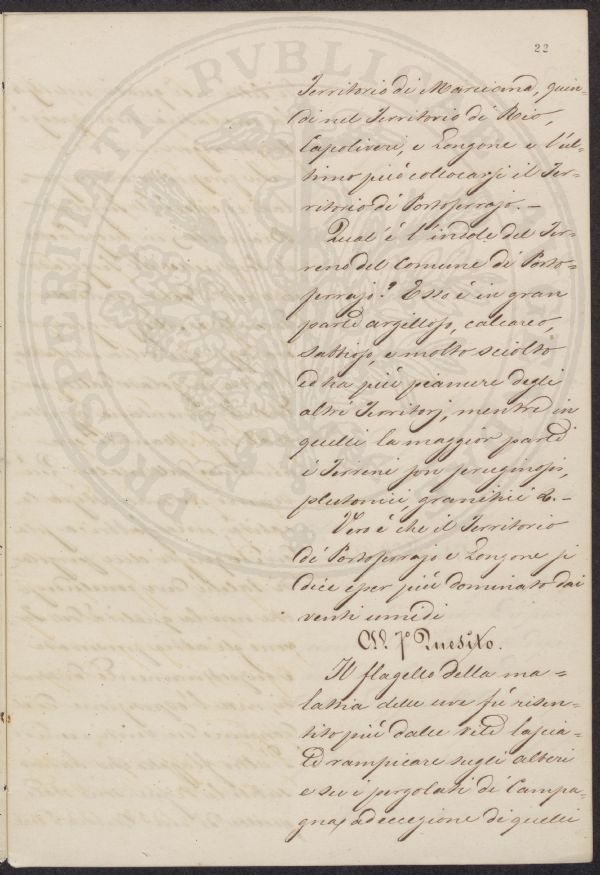 22
Territorio di Marciana, quin-
di nel Territorio di Rio,
Capoliveri, e Longone e l'ul-
timo può collocarsi il Ter-
ritorio di Portoferrajo. –
Qual'è l'indole del Ter-
reno del Comune di Porto-
ferrajo? Esso è in gran
parte argilloso, calcareo,
sabbioso, e molto sciolto
ed ha più pianure degli
altri Territorj, mentre in
quelli la maggior parte
i Terreni son feruginosi,
plutonici, granitici &. –
Vero è che il Territorio
di Portoferrajo e Longone si
dice esser più dominato dai
venti umidi
All. 7º Quesito.
Il flagello della ma=
lattia delle uve fù risen-
tito più dalle viti lascia-
te rampicare sugli alberi
e su i pergolati di Campa-
gna, ad eccezione di quelli
PROSPERITATI PVBLICAE